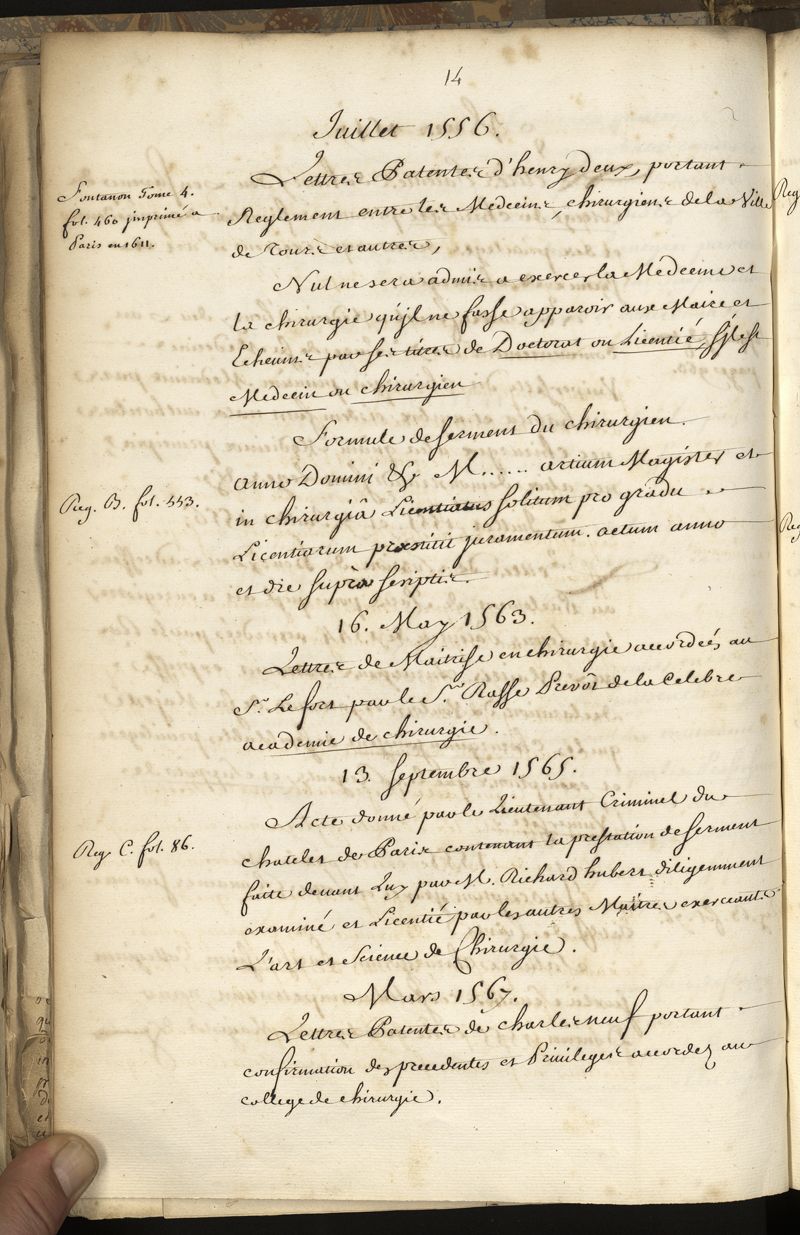 14
Juillet 1556.
Lettres Patentes d'henry deux, portant
Reglement entre les Medecins, chirurgiens de la Ville
de Tours et autres,
Fontanon Tome 4.
fol. 460 jmprimé a
Paris en 1611.
Nul ne sera admis a exercer la Medecine et
la chirurgie qu'jl ne fasse apparoir aux Maire et
Echevins par ses titres de Doctorat ou Licentié, s'jl est
Medecin ou chirurgien
Formule de serment du chirurgien.
anno Domini &c M...... artium Magister et
in chirurgiâ Licentiatus solitum pro gradu
Reg. B. fol. 553.
Licentiarum præstitit juramentum. actum anno
et die suprà scriptis.
16. May 1563.
Lettres de Maitrise en chirurgie accordeés au
Sr. Le fort par le Sr. Rasse Prevôt de la Celebre
academie de chirurgie.
13. Septembre 1565.
Acte donné par le Lieutenant Criminel du
chatelet de Paris contenant la prestation de serment
Reg. C. fol. 86.
faite devant Luy par M. Richard hubert diligemment
examiné et Licentié par les autres Maitres exerceants
L'art et Science de Chirurgie.
Mars 1567.
Lettres Patentes de charles neuf portant
confirmation des precedentes et Privileges accordez au
college de chirurgie.